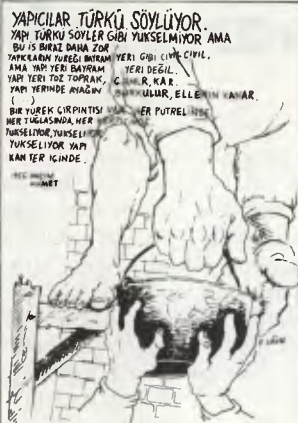 YAPICILAR TÜRKÜ SÖYLÜYOR.
YAPI TÜRKÜ SÖYLER GİBİ YÜKSELMİYOR AMA
BU İŞ BİRAZ DAHA ZOR
YAPICILARIN YÜREĞİ BAYRAM YERİ GİBİ CIVIL CIVIL,
AMA YAPI YERİ BAYRAM YERİ DEĞİL.
YAPI YERİ TOZ TOPRAK, KAR.
YAPI YERİNDE AYAĞIN BURKULUR, ELLERİN KANAR.
( )
BİR YÜREK ÇIRPINTISI HER PUTRELİNDE
HER TUĞLASINDA, HER
YÜKSELİYOR, YÜKSELİ
YÜKSELİYOR YAPI
KAN TER İÇİNDE.